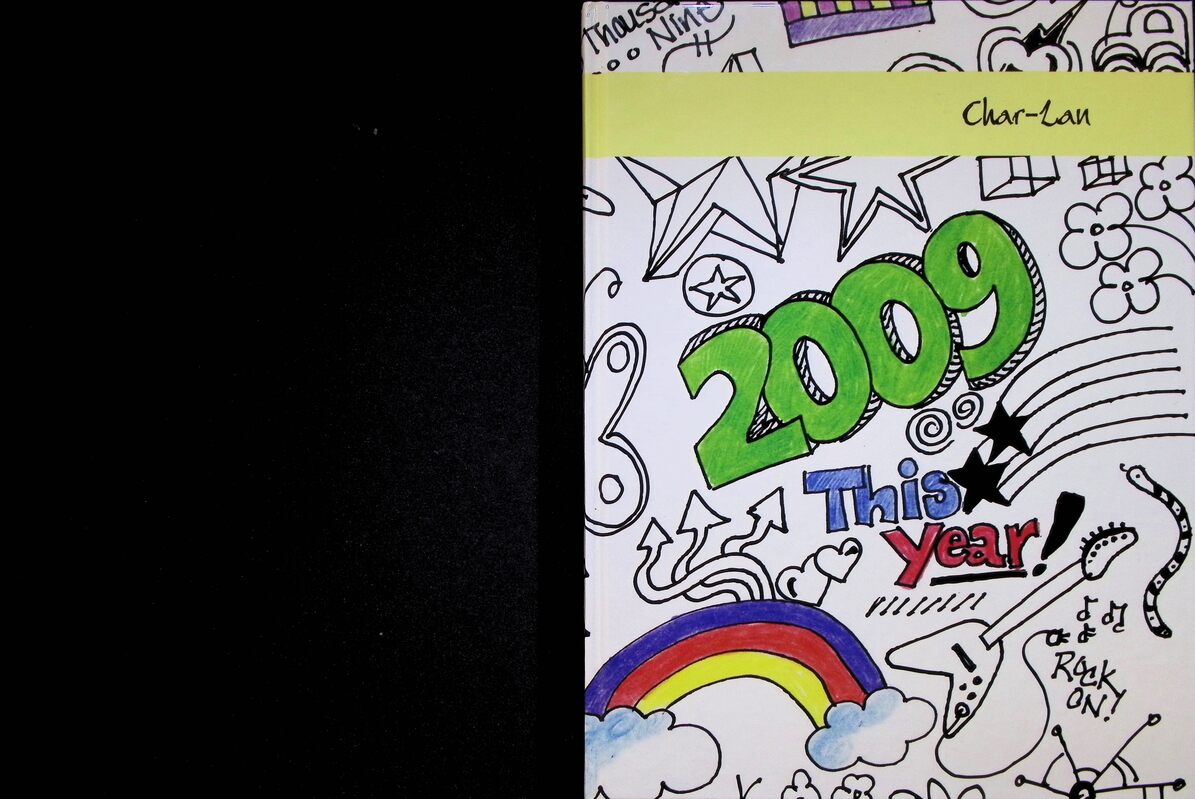 Thousa
Nine
Char-Lan
2009
This
year!
ROCK
ON!